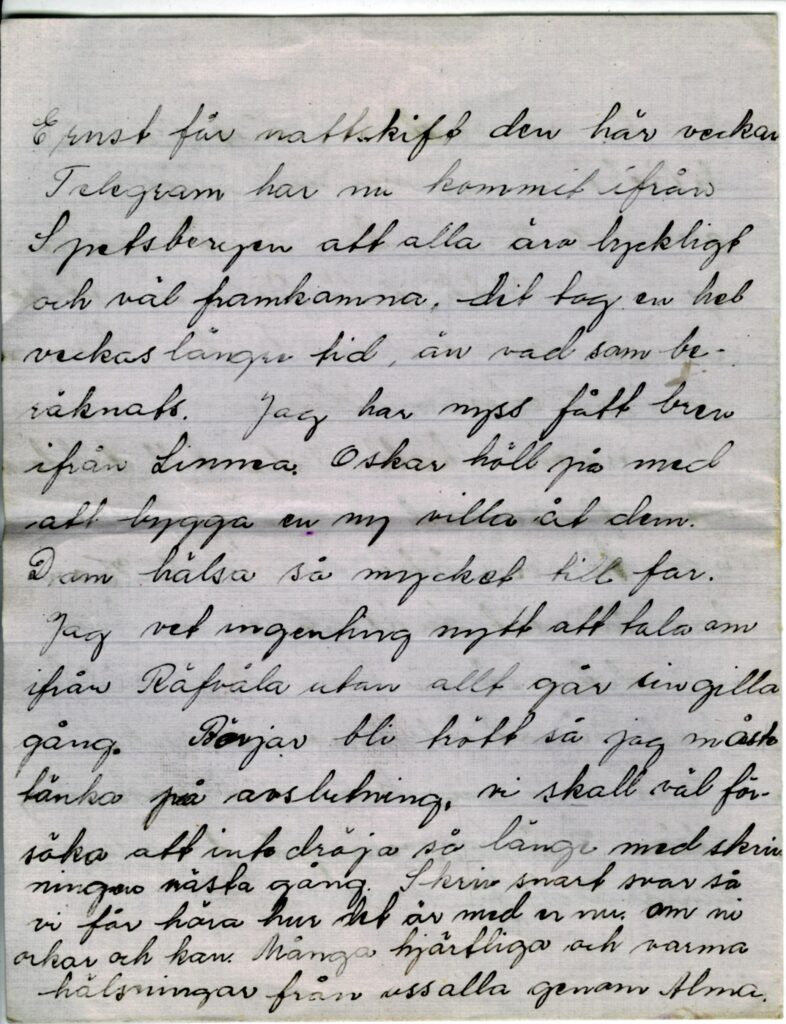 Ernst får nattskift den här veckan
Telegram har nu kommit ifrån
Spetsbergen att alla äro lyckligt
och väl framkomna, det tog en hel
veckas längre tid, än vad som be-
räknats. Jag har nyss fått brev
ifrån Linnea. Oskar höll på med
att bygga en ny villa åt dem.
Dom hälsa så mycket till far.
Jag vet ingenting nytt att tala om
ifrån Räfvåla utan allt går sin gilla
gång. Börjar bli trött så jag måste
tänka på avslutning, vi skall väl för-
söka att inte dröja så länge med skriv
ningen nästa gång. Skriv snart svar så
vi får höra hur det är med er nu. om ni
orkar och kan. Många hjärtliga och varma
hälsningar från oss alla genom Alma.